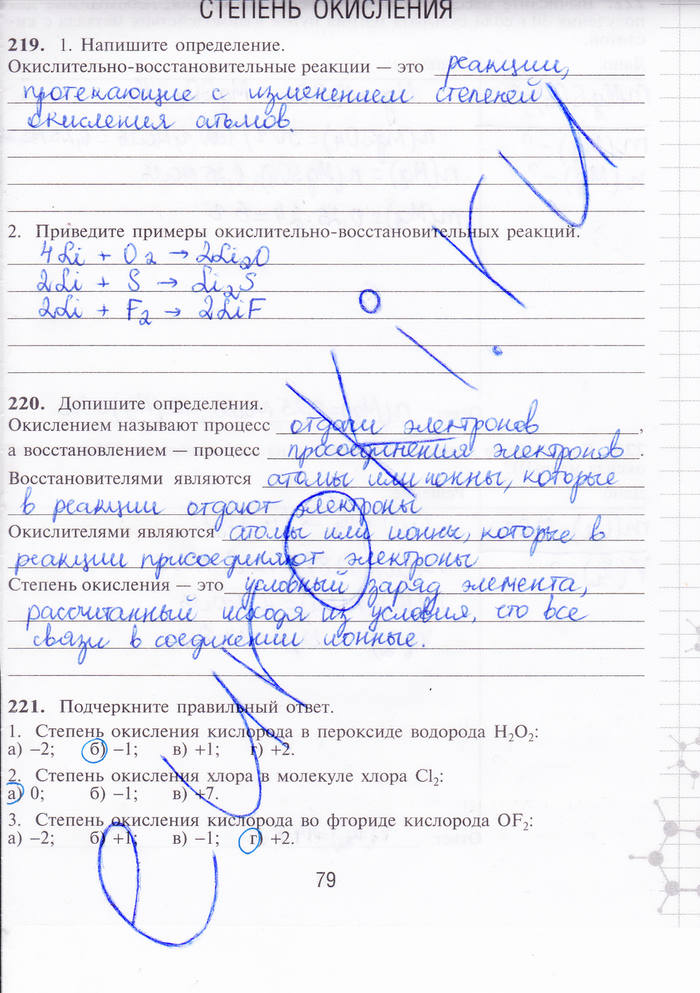 СТЕПЕНЬ ОКИСЛЕНИЯ
219. 1. Напишите определение.
Окислительно-восстановительные реакции — это реакции,
протекающие с изменением степеней
окисления атомов.
2. Приведите примеры окислительно-восстановительных реакций.
4Li + O₂ → 2Li₂O
2Li + S → Li₂S
2Li + F₂ → 2LiF
220. Допишите определения.
Окислением называют процесс отдачи электронов,
а восстановлением — процесс присоединения электронов.
Восстановителями являются атомы или ионны, которые
в реакции отдают электроны
Окислителями являются атомы или ионны, которые в
реакции присоединяют электроны
Степень окисления — это условный заряд элемента,
рассчитанный исходя из условия, что все
связи в соединении ионные.
221. Подчеркните правильный ответ.
1. Степень окисления кислорода в пероксиде водорода H₂O₂:
а) –2; б) –1; в) +1; г) +2.
2. Степень окисления хлора в молекуле хлора Cl₂:
а) 0; б) –1; в) +7.
3. Степень окисления кислорода во фториде кислорода OF₂:
а) –2; б) +1; в) –1; г) +2.
79
euroki.ru